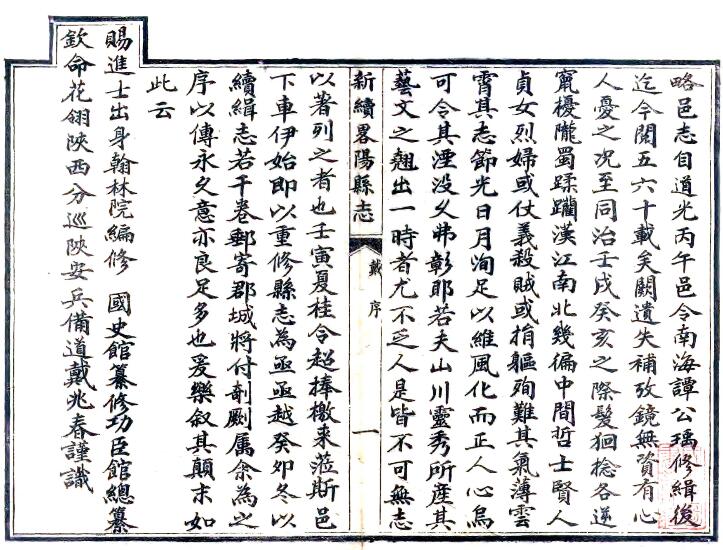 略邑志自道光丙午邑令南海譚公瑀修緝後
迄今閱五六十載矣闕遺失補攷鏡無資有心
人憂之況至同治壬戌癸亥之際髮狪捻各逆
竄擾隴蜀蹂躪漢江南北幾徧中間哲士賢人
貞女烈婦或仗義殺賊或捐軀殉難其氣薄雲
霄其志節光日月洵足以維風化而正人心烏
可令其湮没乆弗彰耶若夫山川靈秀所產其
藝文之翹出一時者尤不乏人是皆不可無志
新續畧陽縣志
戴序
一
以著列之者也壬寅夏桂令超捧檄来蒞斯邑
下車伊始即以重修縣志為亟亟越癸夘冬以
續緝志若干卷郵寄郡城將付剞劂属余為之
序以傳永久意亦良足多也爰樂敘其顛末如
此云
賜進士出身翰林院編修 國史館纂修功臣館總纂
欽命花翎陝西分巡陝安兵備道戴兆春謹識